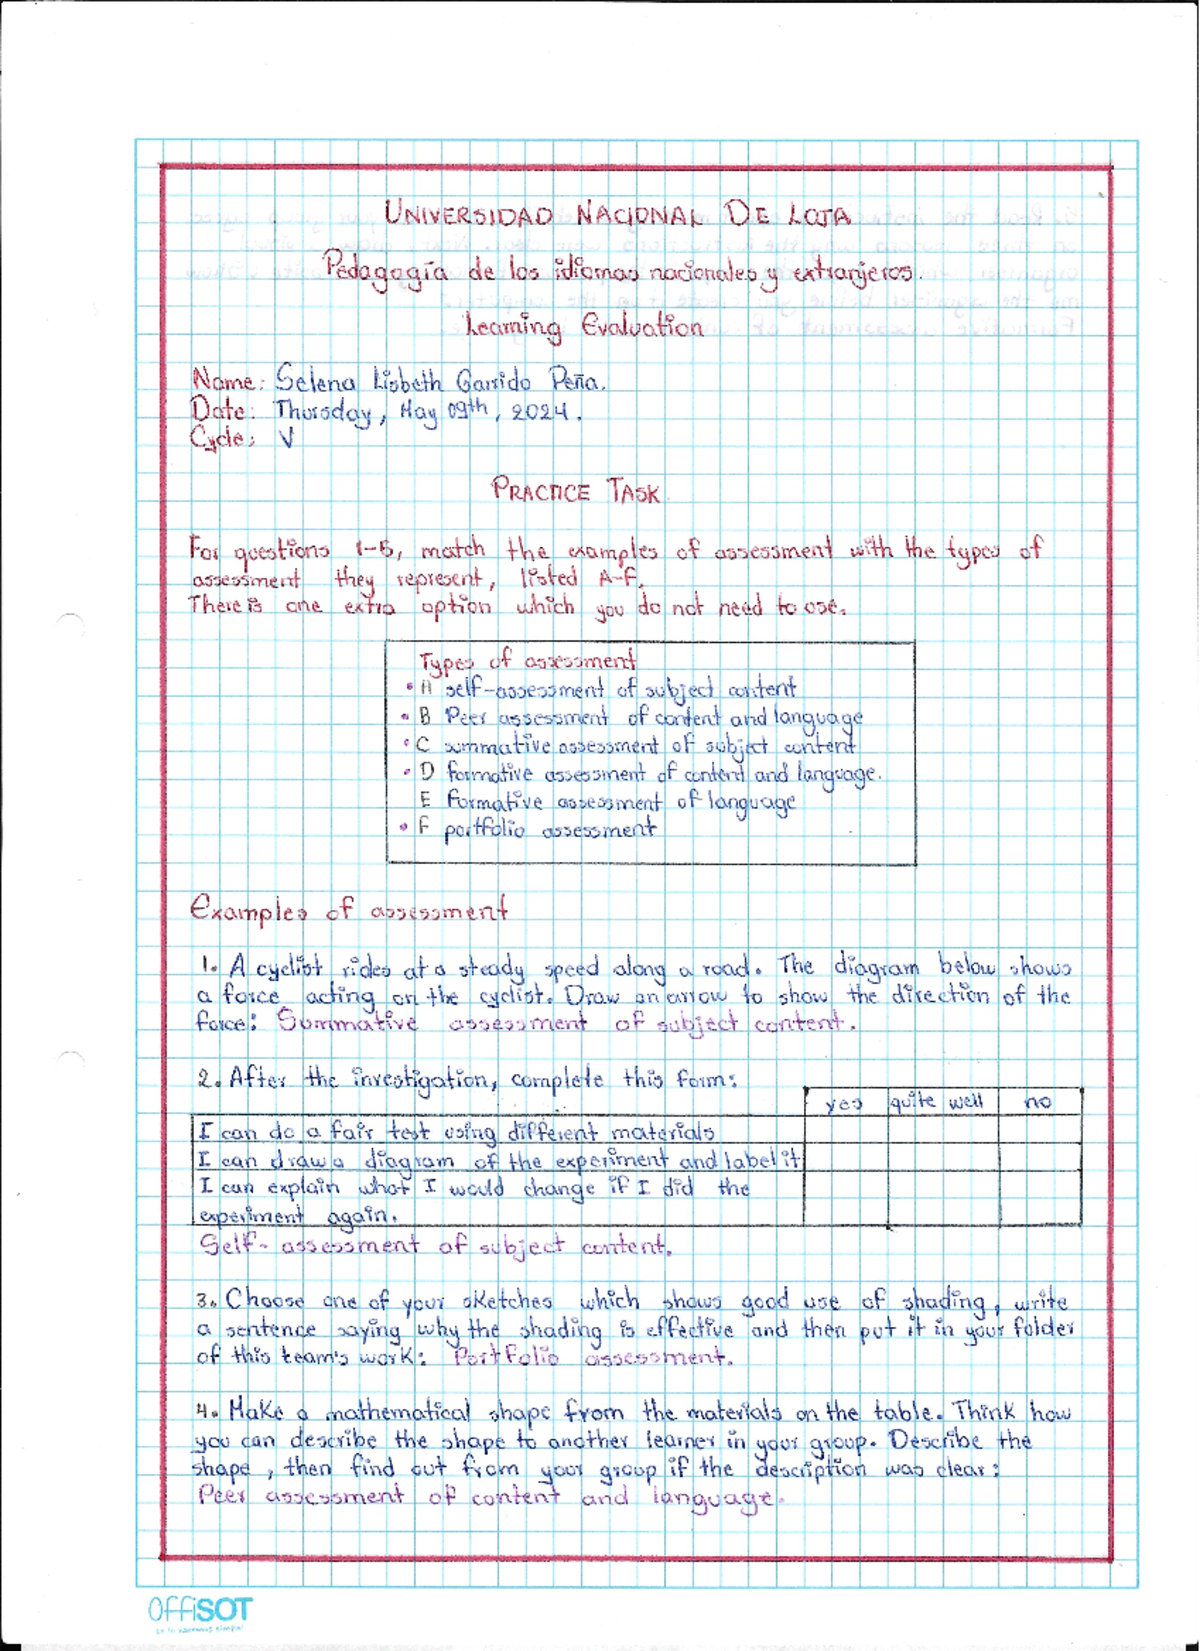 UNIVERSIDAD NACIONAL DE LOJA
Pedagogía de los idiomas nacionales y extranjeros.
Learning Evaluation
Name: Selena Lisbeth Garrido Peña.
Date: Thursday, May 09th, 2024.
Cycle: V
PRACTICE TASK
For questions 1-5, match the examples of assessment with the types of
assessment they represent, listed A-F.
There is one extra option which you do not need to use.
Types of assessment
• A self-assessment of subject content
• B Peer assessment of content and language
• C summative assessment of subject content
• D formative assessment of content and language.
E formative assessment of language
• F portfolio assessment
Examples of assessment
1. A cyclist rides at a steady speed along a road. The diagram below shows
a force acting on the cyclist. Draw an arrow to show the direction of the
force: Summative assessment of subject content.
2. After the investigation, complete this form:
yes quite well no
I can do a fair test using different materials
I can draw a diagram of the experiment and label it
I can explain what I would change if I did the
experiment again.
Self-assessment of subject content.
3. Choose one of your sketches which shows good use of shading, write
a sentence saying why the shading is effective and then put it in your folder
of this team's work: Portfolio assessment.
4. Make a mathematical shape from the materials on the table. Think how
you can describe the shape to another learner in your group. Describe the
shape, then find out from your group if the description was clear:
Peer assessment of content and language.
OffiSOT